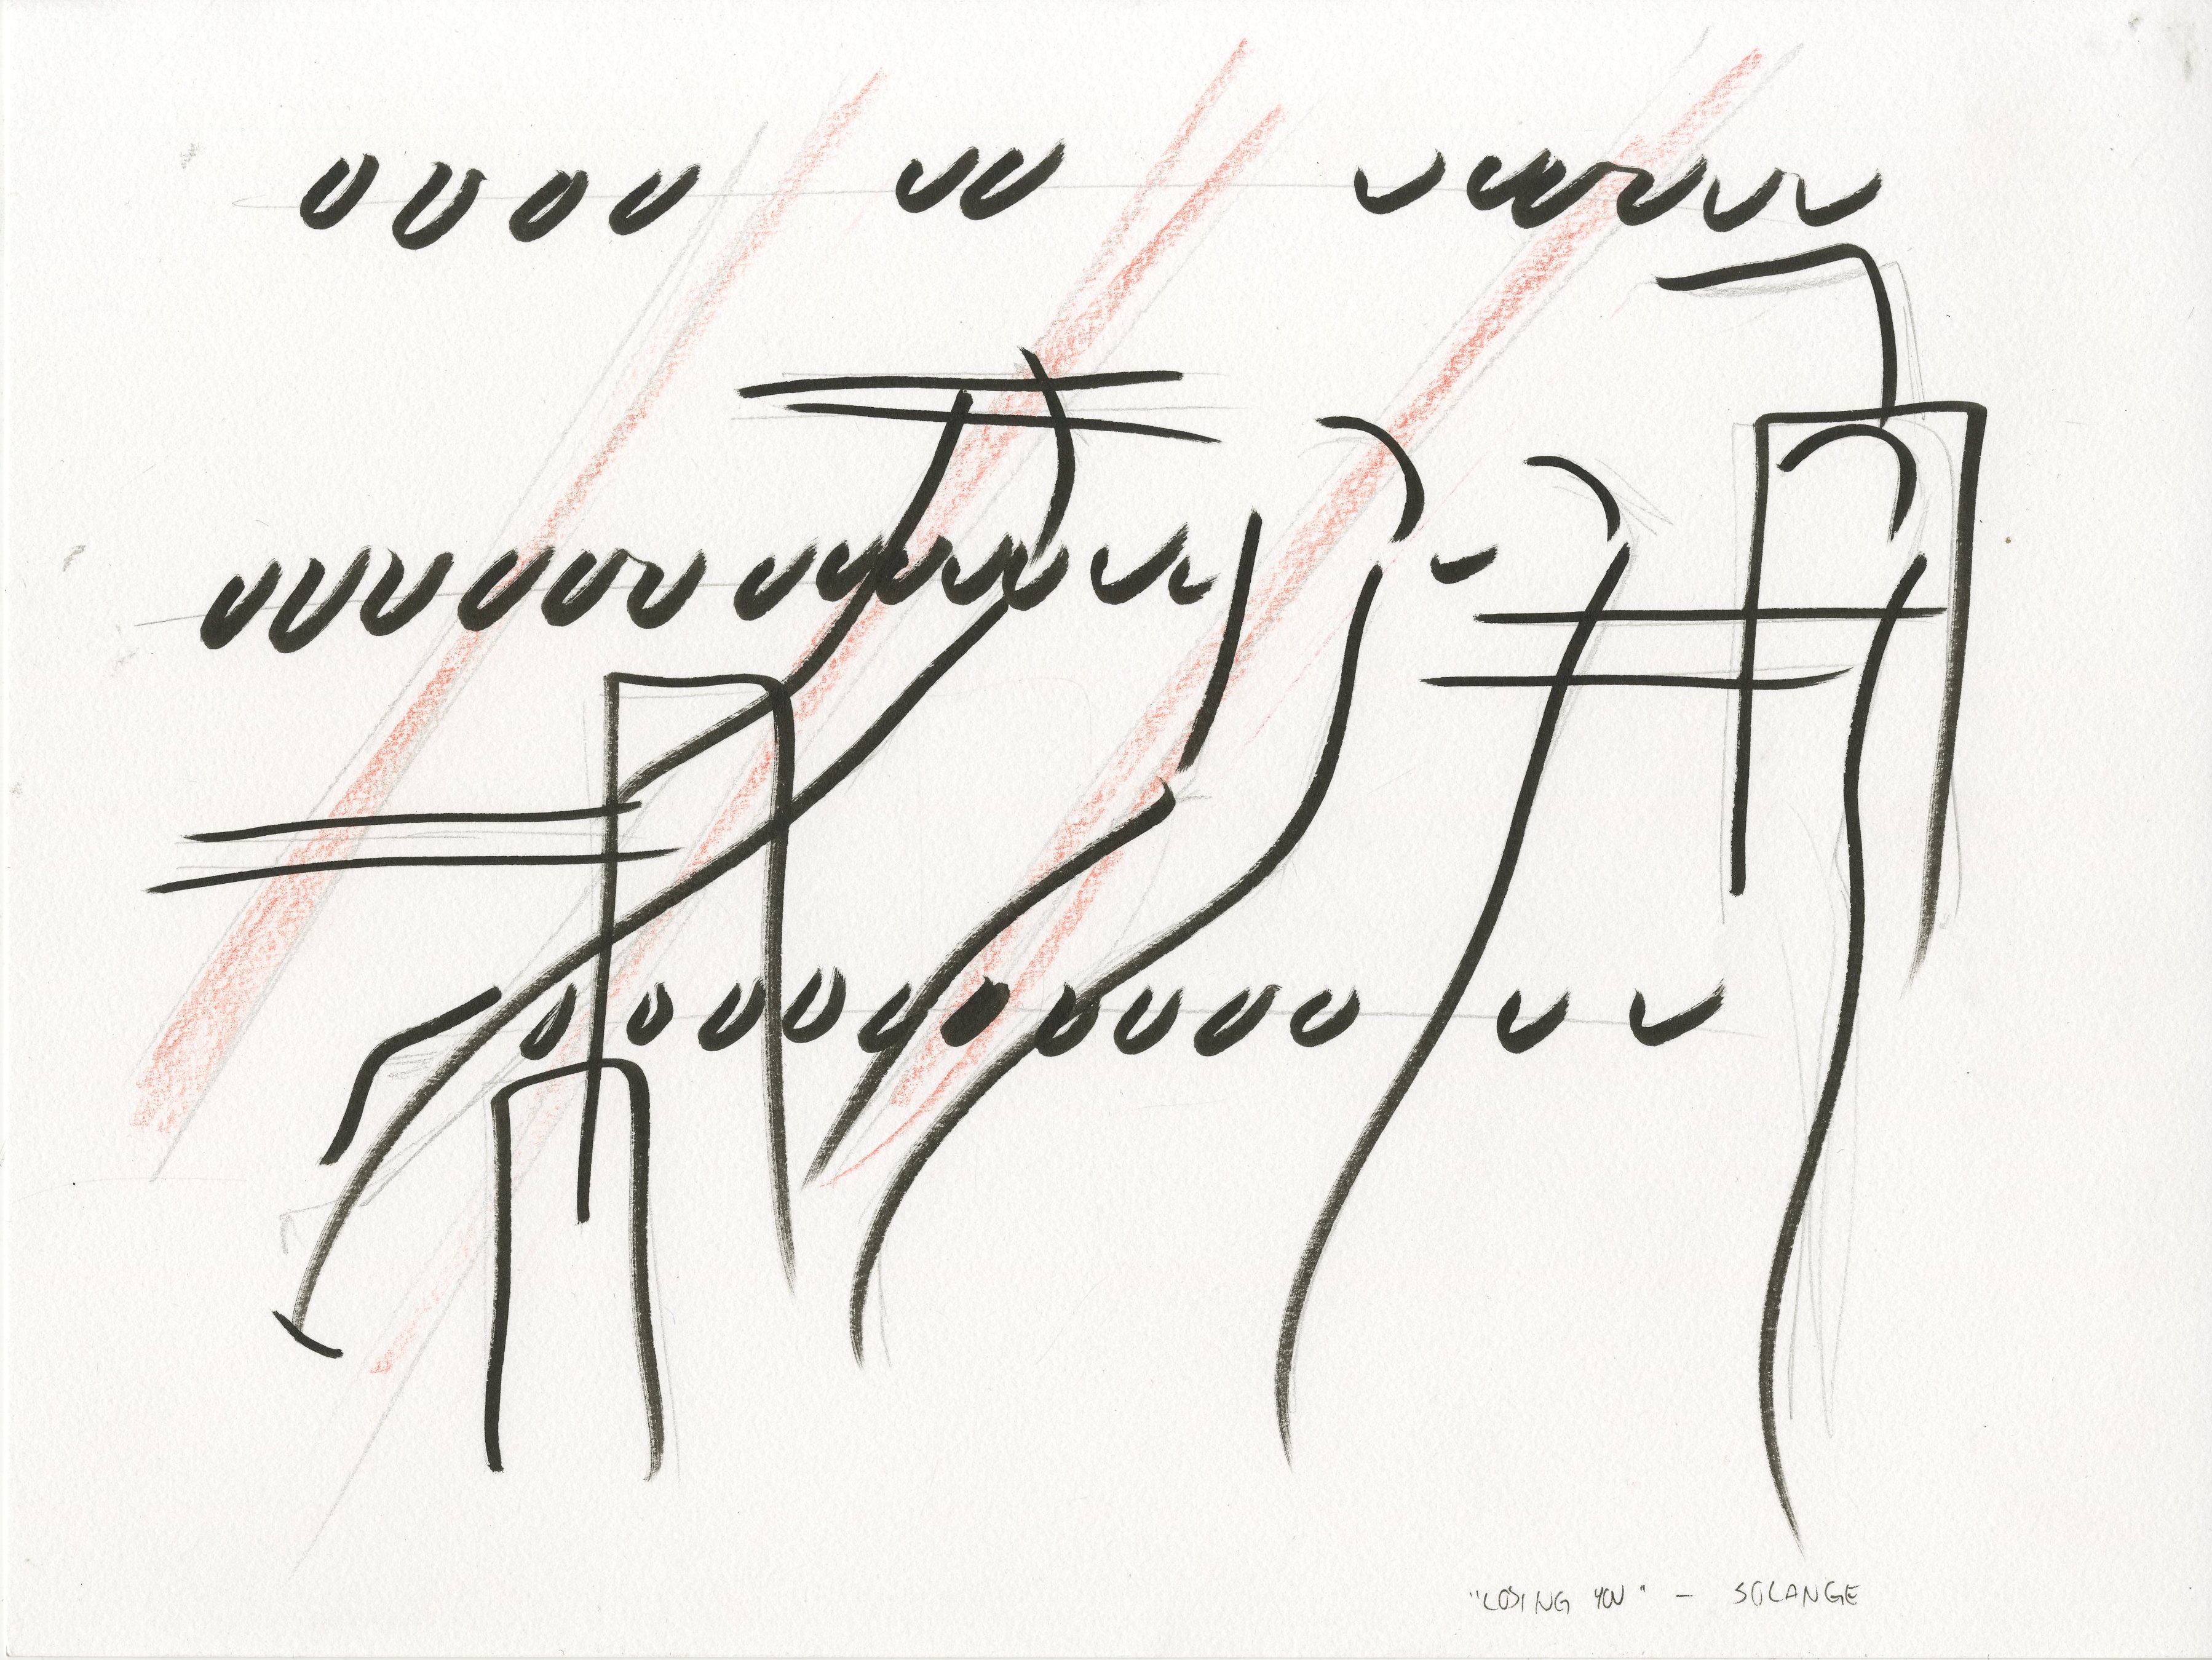 "LOSING YOU" - SOLANGE